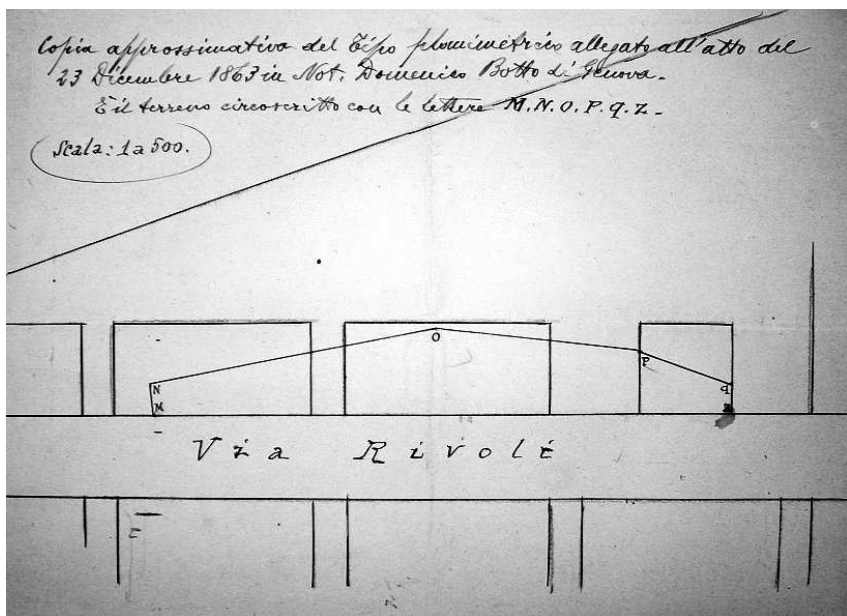 Copia approssimativa del Tipo planimetrico allegato all'atto del
23 Dicembre 1863 in Not. Domenico Botto di Genova.
È il terreno circoscritto con le lettere M.N.O.P.q.Z.
Scala: 1 a 500.
O
P
N
q
M
Via Rivoli